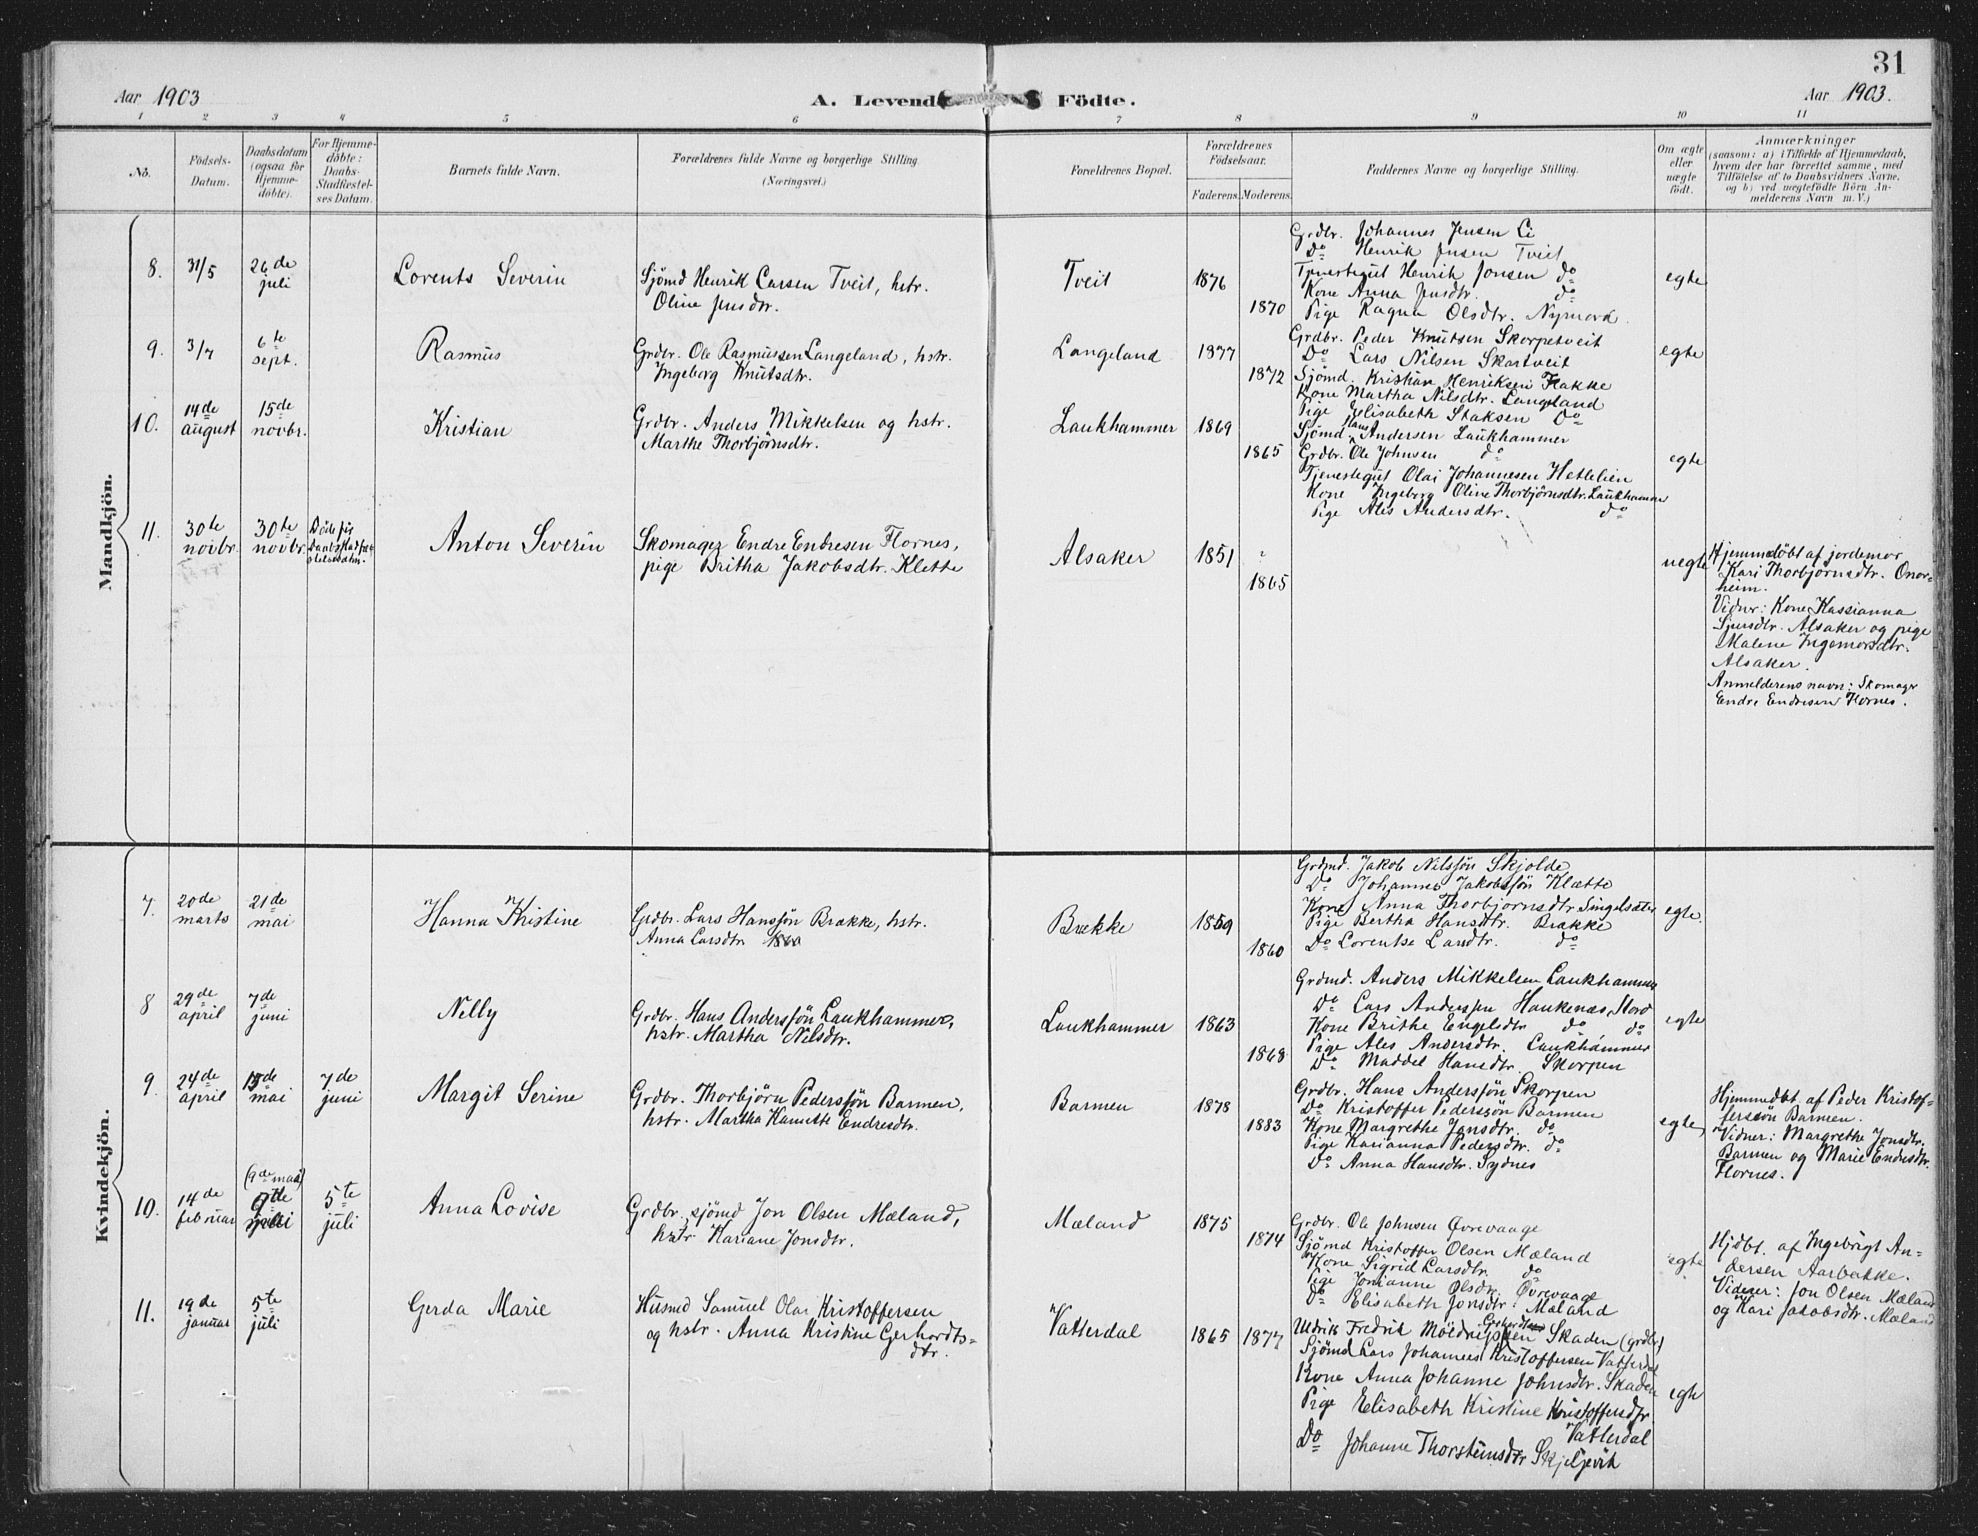 31
Aar 1903
A. Levende Födte.
Aar 1903.
1 2 3 4 5 6 7 8 9 10 11
No.
Födsels-Datum.
Daabsdatum (ogsaa for Hjemme-döbte).
For Hjemme-döbte: Daabs-Stadfæstel-ses Datum.
Barnets fulde Navn.
Forældrenes fulde Navne og borgerlige Stilling.
(Næringsvei.)
Forældrenes Bopæl.
Forældrenes Födselsaar.
Faderens. Moderens.
Faddernes Navne og borgerlige Stilling.
Om ægte eller uægte födt.
Anmærkninger
(saasom: a) i Tilfælde af Hjemmedaab,
hvem der har forrettet samme, med
Tilföielse af to Daabsvidners Navne,
og b) ved uægtefödte Börn An-
melderens Navn m. V.)
Mandkjön.
8. 31/5 26de juli
Lorents Severin
Sjömd Henrik Larsen Tveit, hstr.
Oline Jensdtr.
Tveit 1876 1870
Grdbr. Johannes Jensen Li
Do Henrik Jensen Tveit
Tjenestegut Henrik Jonsen do
Kone Anna Jensdtr. do
Pige Ragna Olsdtr. Nymark
egte
9. 3/7 6te sept.
Rasmus
Grdbr. Ole Rasmussen Langeland, hstr.
Ingeborg Knutsdtr.
Langeland 1877 1872
Grdbr. Peder Knutsen Skorpetveit
Do Lars Nilsen Skartveit
Sjömd. Kristian Henriksen Flakke
Kone Martha Nilsdtr. Langeland
Pige Elisabeth Isaksen Do
egte
10. 14de august 15de novbr.
Kristian
Grdbr. Anders Mikkelsen og hstr.
Marthe Thorbjörnsdtr.
Laukhammer 1869 1865
Sjömd Hans Andersen Laukhammer
Grdbr. Ole Johnsen do
Tjenestegut Olai Johannesen Hetlelien
Kone Ingeborg Oline Thorbjörnsdtr. Laukhammer
Pige Ales Andersdtr. do
egte
11. 30te novbr. 30te novbr.
Döde før Daabsstadfæstelsesdatm.
Anton Severin
Skomager Endre Endresen Flornes,
pige Britha Jakobsdtr. Klette
Alsaker 1851 1865
uegte
Hjemmedöbt af jordemor
Kari Thorbjörnsdtr. Onar-
heim.
Vidner: Kone Kassianna
Sjursdtr. Alsaker og pige
Malene Ingemorsdtr.
Alsaker.
Anmelderens navn: Skomager
Endre Endresen Flornes.
Kvindekjön.
7. 20de marts 21de mai
Hanna Kristine
Grdbr. Lars Hanssön Brække, hstr.
Anna Larsdtr 1860
Brække 1859 1860
Grdmd. Jakob Nilssön Skjolde
Do Johannes Jakobssön Klætte
Kone Anna Thorbjörnsdtr Singelsæter
Pige Bertha Hansdtr. Brække
Do Lorentse Larsdtr. do
egte.
8 29de april 7de juni
Nelly
Grdbr. Hans Anderssön Laukhammer,
hstr. Martha Nilsdtr.
Laukhammer 1863 1868
Grdmd. Anders Mikkelsen Laukhammer
Do Lars Anderssen Haukenæs, Mord
Kone Brithe Engelsdtr do do
Pige Ales Andersdtr. Laukhammer
Do Maddel Hansdtr. Skorpen
egte
9 24de april 15de mai 7de juni
Margit Serine
Grdbr. Thorbjörn Pederssön Barmen,
hstr. Martha Hanette Endresdtr.
Barmen 1878 1883
Grdbr. Hans Anderssön Skorpen
Do Kristoffer Pederssön Barmen
Kone Margrethe Jonsdtr. do
Pige Karianna Pedersdtr. do
Do Anna Hansdtr. Sydnes
egte
Hjemmedbt af Peder Kristof-
ferssön Barmen.
Vidner: Margrethe Jonsdtr.
Barmen og Marie Endresdtr.
Flornes.
10. 14de februar (9de mai) 5te juli
Anna Lovise
Grdbr. sjömd Jon Olsen Mæland,
hstr Kariane Jonsdtr.
Mæland 1875 1874
Grdbr. Ole Johnsen Övrevaage
Sjömd Kristoffer Olsen Mæland
Kone Sigrid Larsdtr. do
Pige Jonianne Olsdtr. Övrevaage
Do Elisabeth Jonsdtr. Mæland
egte
Hjdbt. af Ingebrigt An-
dersen Aarbakke.
Vidner: Jon Olsen Mæland
og Kari Jakobsdtr. Mæland
11. 19de januar 5te juli
Gerda Marie
Husmd Samuel Olai Kristoffersen
og hstr. Anna Kristine Gerhardts-
dtr.
Vatterdal 1865 1877
Uldrik Fredrik Skaden (grdbr.)
Sjömd Lars Johannes Kristoffersen Vatterdal
Kone Anna Johanne Johnsdtr. Skaden
Pige Elisabeth Kristine Kristoffersdtr.
Vatterdal
Do Johanne Thorsteinsdtr Skjeljevik
egte